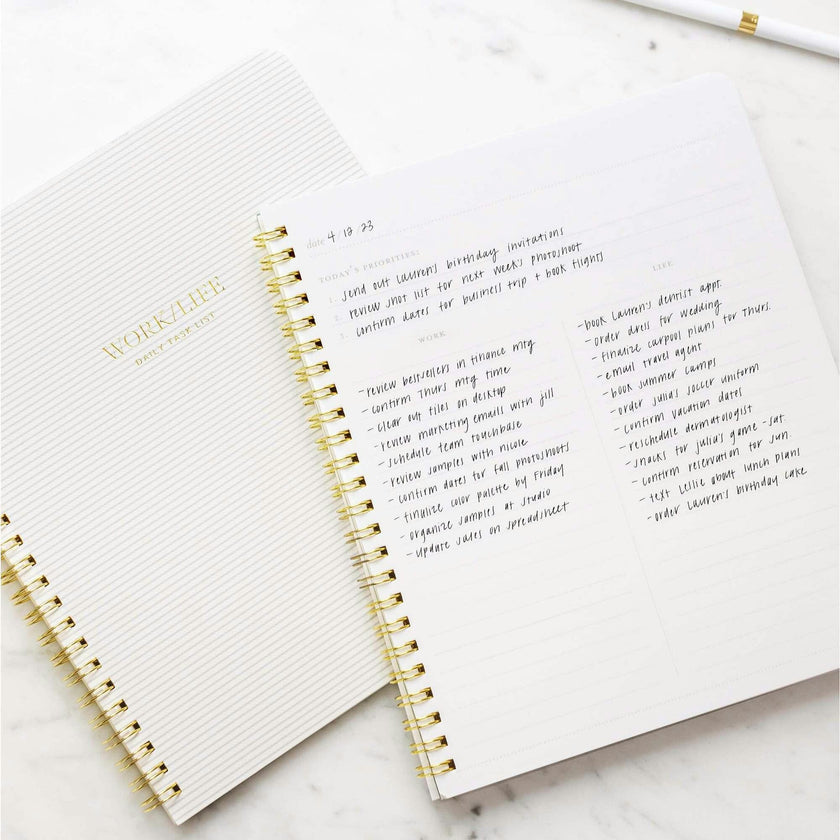 WORK/LIFE
DAILY TASK LIST
date 4/12/23
TODAY'S PRIORITIES:
1. send out Lauren's birthday invitations
2. review shot list for next week's photoshoot
3. confirm dates for business trip + book flights
WORK
- review bestsellers in finance mtg
- confirm Thurs mtg time
- clear out files on desktop
- review marketing emails with jill
- schedule team touchbase
- review samples with nicole
- confirm dates for fall photoshoots
- finalize color palette by Friday
- organize samples at studio
- update sales on spreadsheet
LIFE
- book Lauren's dentist appt.
- order dress for wedding
- finalize carpool plans for Thurs.
- email travel agent
- book summer camps
- order Julia's soccer uniform
- confirm vacation dates
- reschedule dermatologist
- snacks for Julia's game - sat.
- confirm reservation for sun.
- text Lellie about lunch plans
- order Lauren's birthday cake